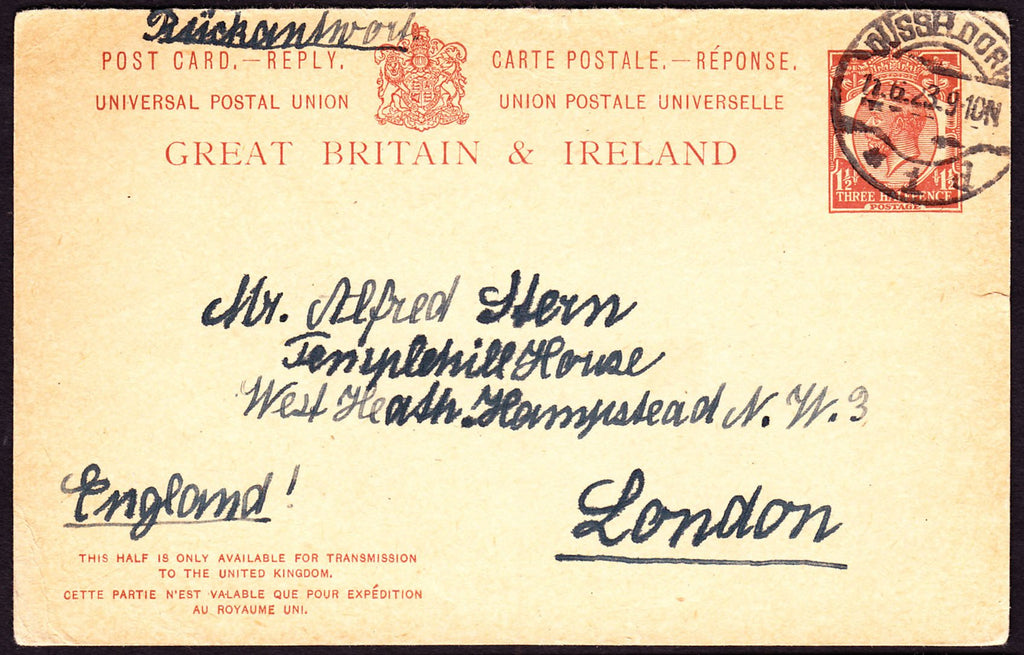 Rückantwort
POST CARD.—REPLY.
CARTE POSTALE.—RÉPONSE.
UNIVERSAL POSTAL UNION
UNION POSTALE UNIVERSELLE
GREAT BRITAIN & IRELAND
DÜSSELDORF
11.6.23.9-10N
1½ 1½
THREE HALFPENCE
POSTAGE
Mr. Alfred Stern
Templehill House
West Heath Hampstead N. W. 3
England!
London
THIS HALF IS ONLY AVAILABLE FOR TRANSMISSION
TO THE UNITED KINGDOM.
CETTE PARTIE N'EST VALABLE QUE POUR EXPÉDITION
AU ROYAUME UNI.